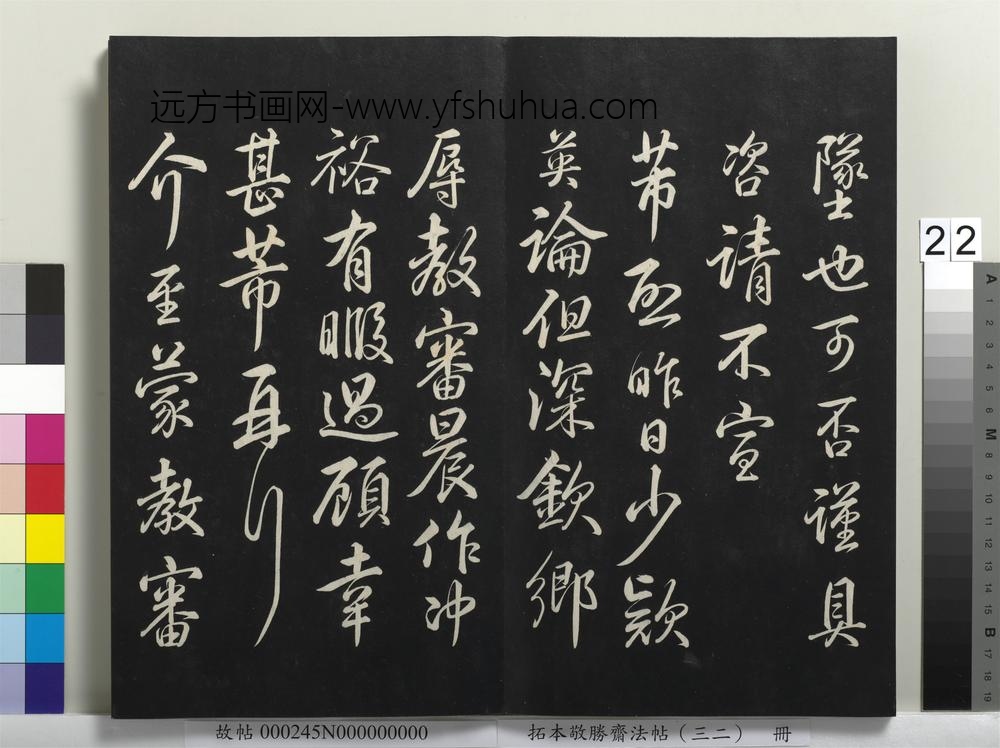 远方书画网-www.yfshuhua.com
墜也可否謹具
咨請不宣
芾啟昨日少款
英論但深欽鄉
辱教審晨作冲
裕有暇過顧幸
甚芾再拜
介至蒙教審
22
A 1 2 3 4 5 6 M 8 9 10 11 12 13 14 15 B 17 18 19
故帖 000245N000000000
拓本敬勝齋法帖（三二） 冊